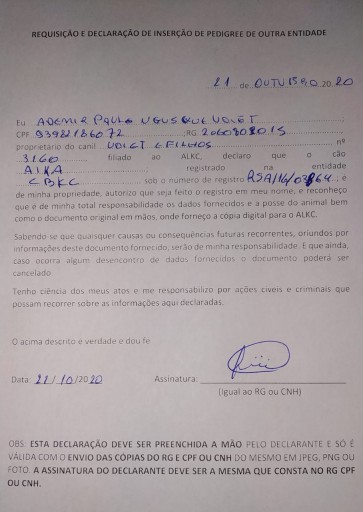 REQUISIÇÃO E DECLARAÇÃO DE INSERÇÃO DE PEDIGREE DE OUTRA ENTIDADE
21 de OUTUBRO 20 20
Eu ADEMIR PAULO
CPF 93981186072 RG 2060802015
proprietário do canil VOIGT E FILHOS nº
3160 filiado ao ALKC, declaro que o cão
AIKA registrado na entidade
CBKC sob o número de registro RSA/16/03864, e
de minha propriedade, autorizo que seja feito o registro em meu nome, e reconheço
que é de minha total responsabilidade os dados fornecidos e a posse do animal bem
como o documento original em mãos, onde forneço a cópia digital para o ALKC.
Sabendo se que quaisquer causas ou consequências futuras recorrentes, oriundos por
informações deste documento fornecido, serão de minha responsabilidade. E que ainda,
caso ocorra algum desencontro de dados fornecidos o documento poderá ser
cancelado.
Tenho ciência dos meus atos e me responsabilizo por ações cíveis e criminais que
possam recorrer sobre as informações aqui declaradas.
O acima descrito é verdade e dou fé
Data: 21/10/2020 Assinatura:
(Igual ao RG ou CNH)
OBS: ESTA DECLARAÇÃO DEVE SER PREENCHIDA A MÃO PELO DECLARANTE E SÓ É
VÁLIDA COM O ENVIO DAS CÓPIAS DO RG E CPF OU CNH DO MESMO EM JPEG, PNG OU
FOTO. A ASSINATURA DO DECLARANTE DEVE SER A MESMA QUE CONSTA NO RG CPF
OU CNH.